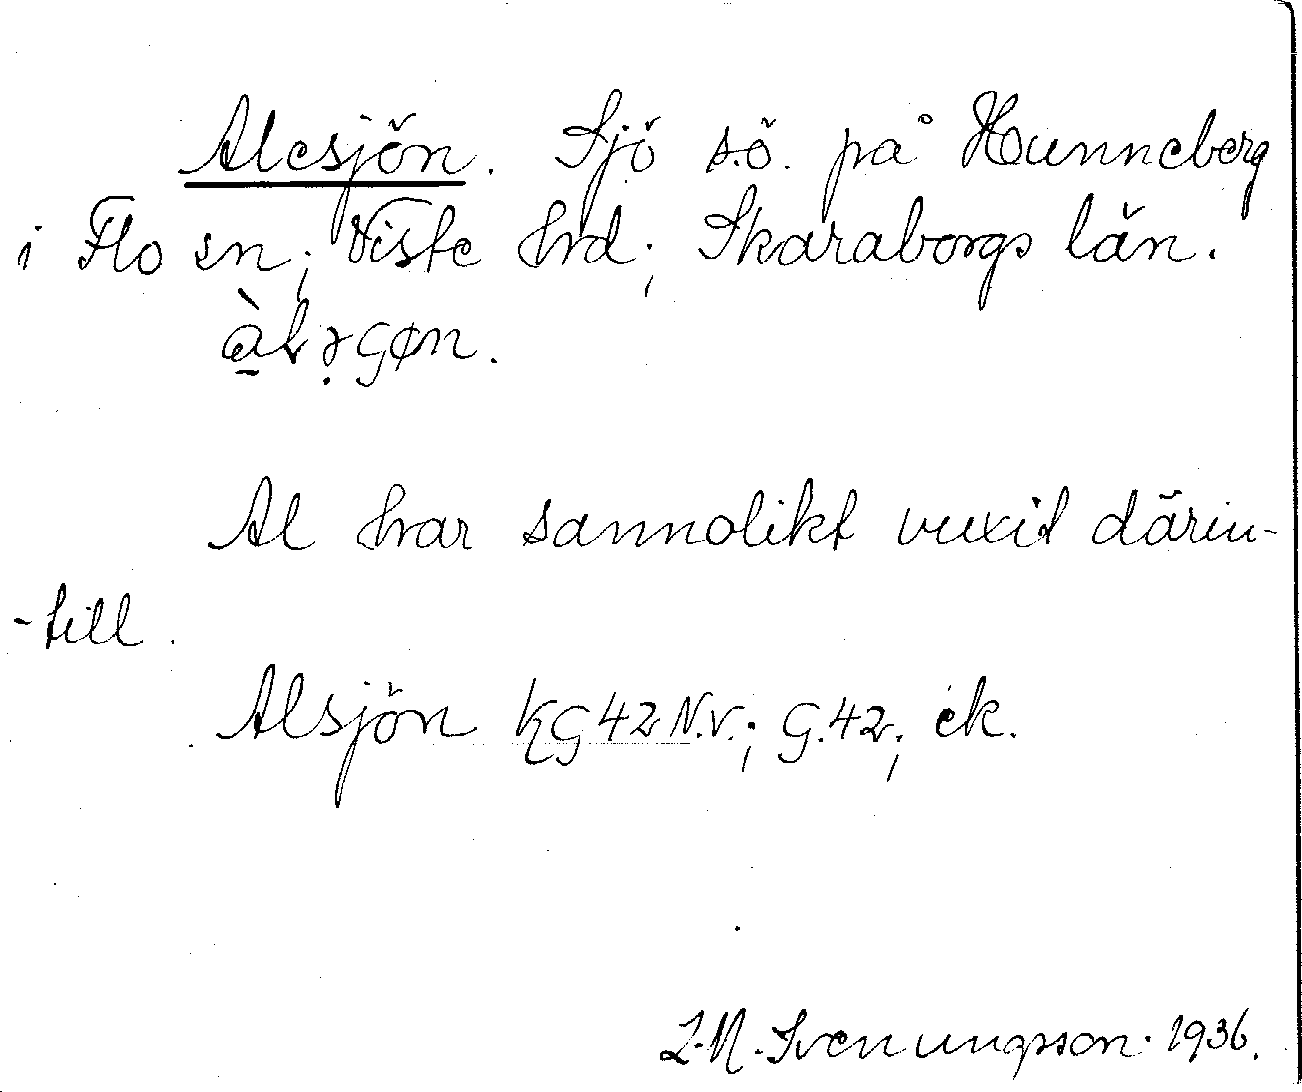 Alesjön. Sjö s.ö. på Hunneberg
i Flo sn; Viste hrd; Skaraborgs län.
Al har sannolikt vuxit därin-
-till.
Alsjön KG42N.V.; G.42; ek.
L.M. Svenungson. 1936.